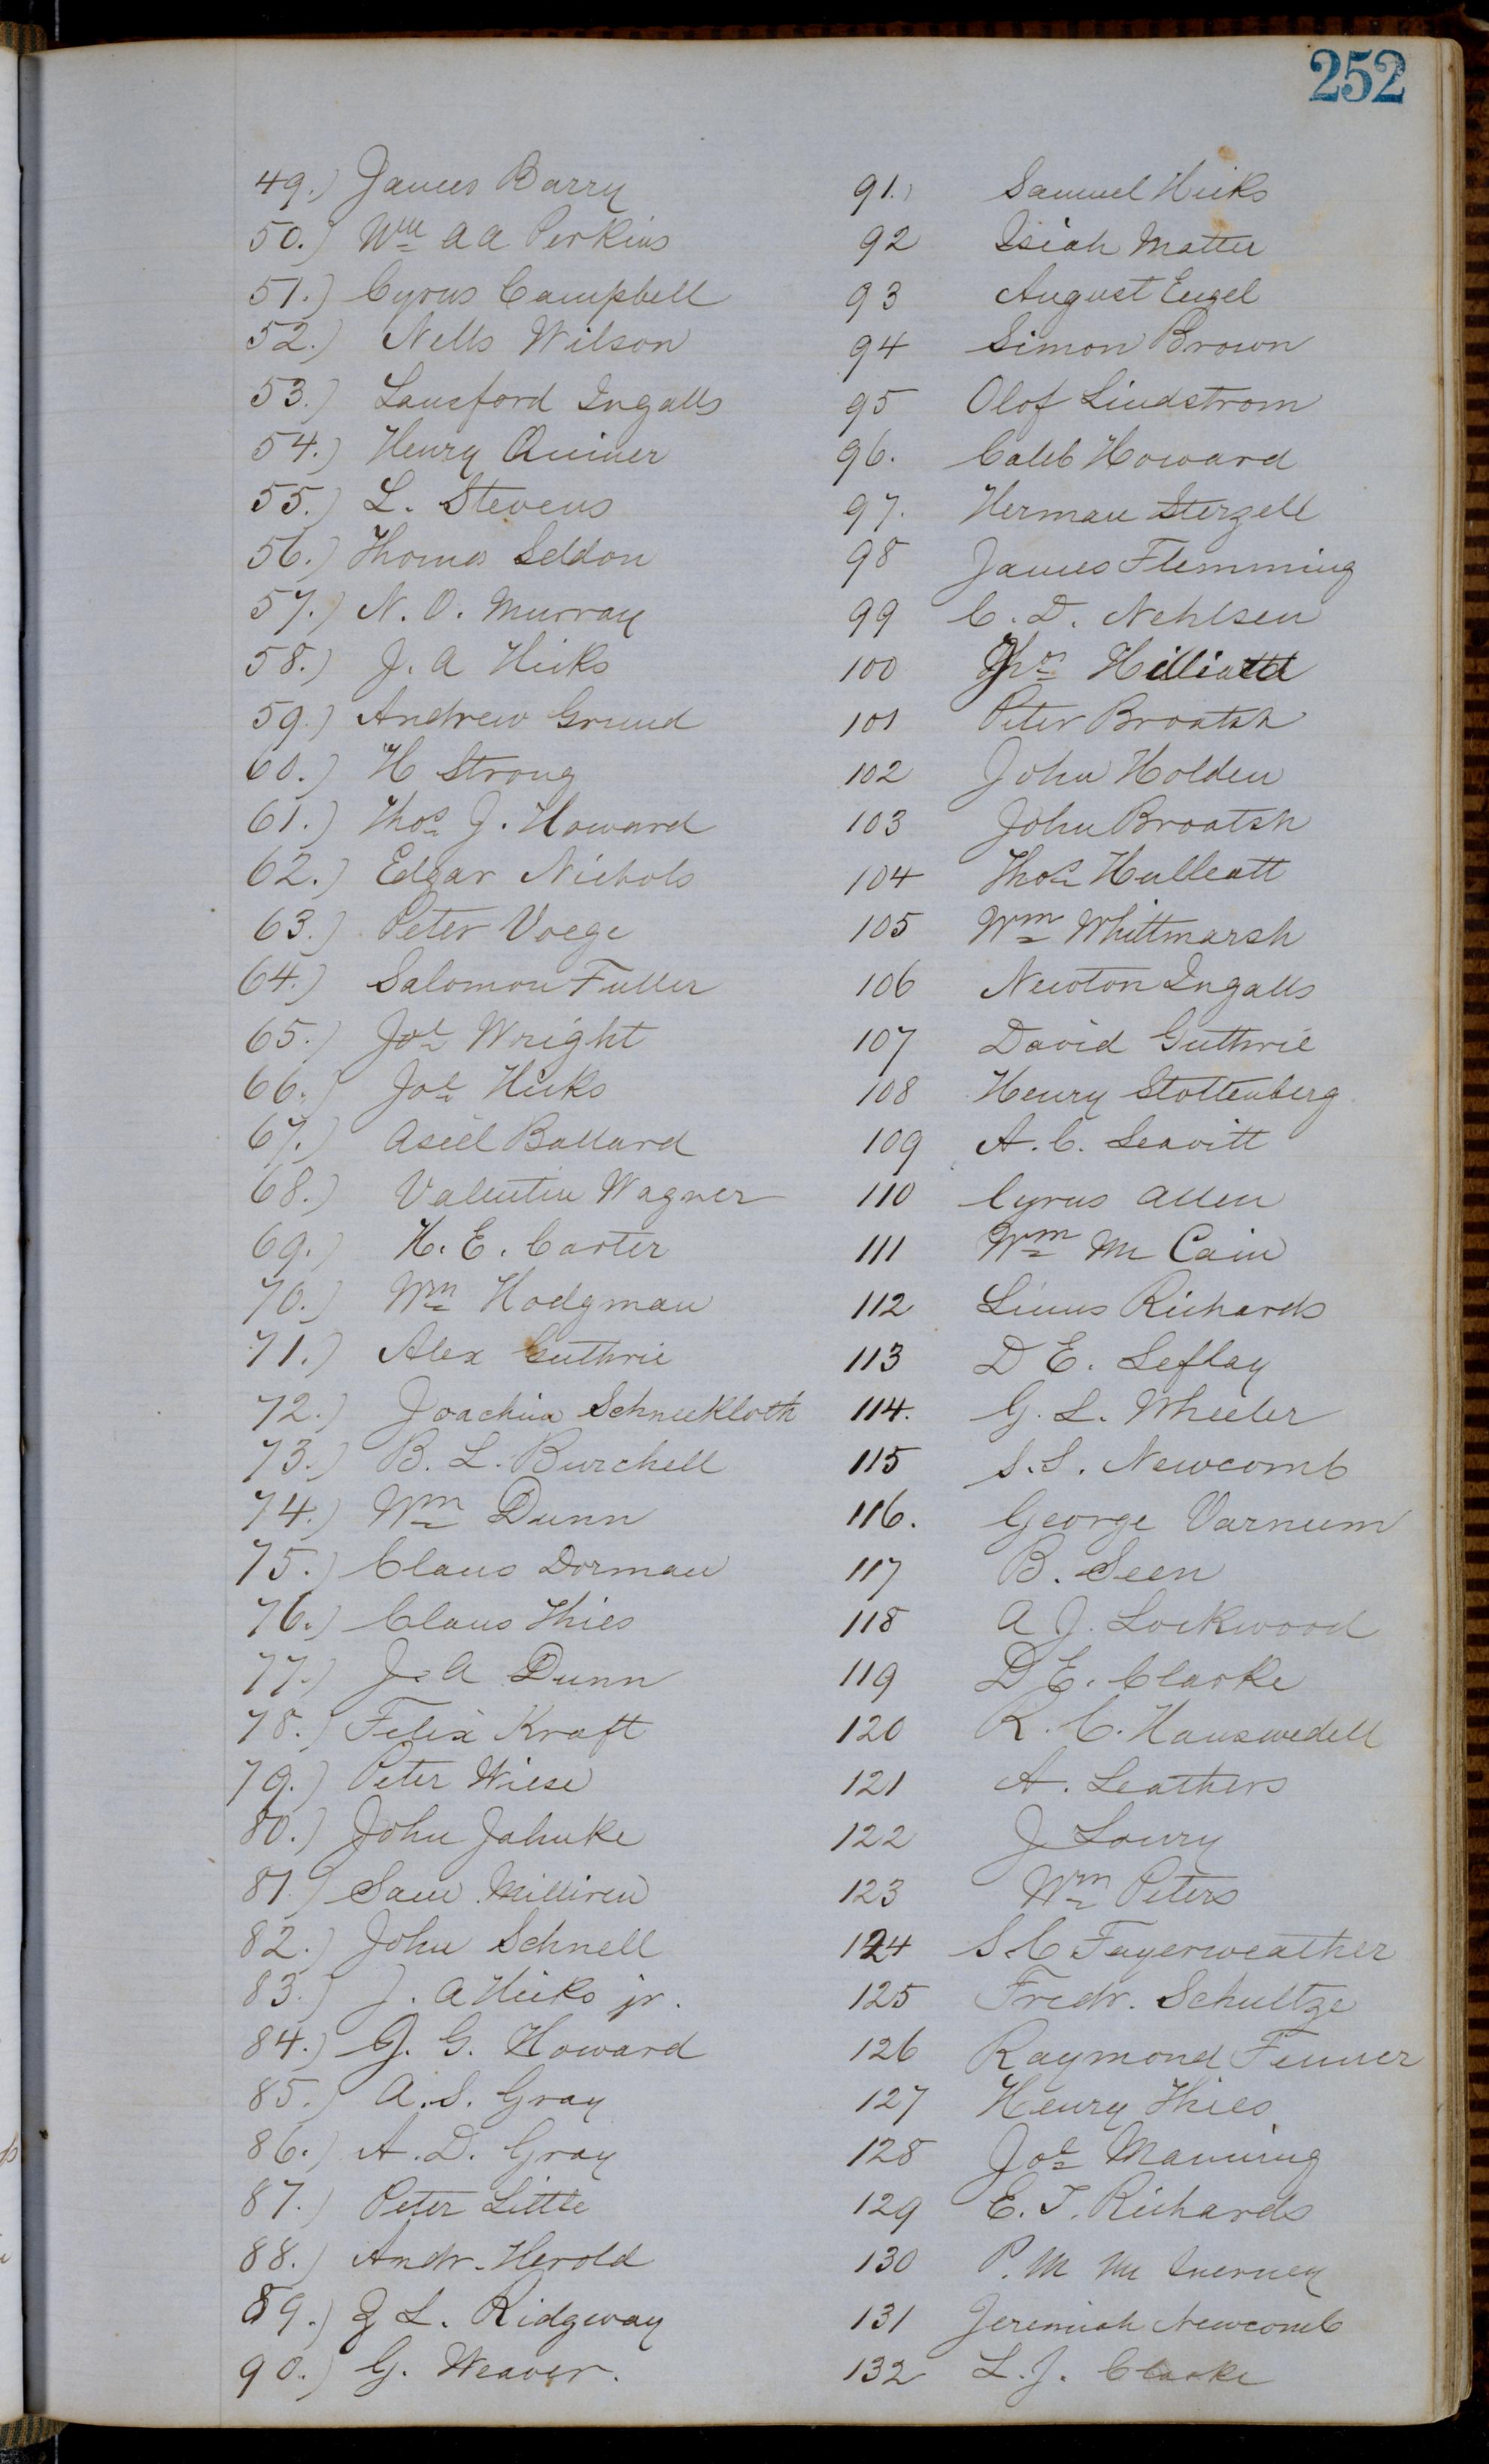 252
49.) James Barry
50.) Wm A A Perkins
51.) Cyrus Campbell
52.) Nells Wilson
53.) Lansford Ingalls
54.) Henry Quiner
55.) L. Stevens
56.) Thomas Seldon
57.) N. O. Murray
58.) J. A Hicks
59.) Andrew Grund
60.) H Strong
61.) Thos J. Howard
62.) Edgar Nichols
63.) Peter Voege
64.) Salomon Fuller
65.) Jos Wright
66.) Jos Hicks
67.) Aseel Ballard
68.) Valentin Wagner
69.) H. E. Carter
70.) Wm Hodgman
71.) Alex Guthrie
72.) Joachim Schneekloth
73.) B. L. Burchell
74.) Wm Dunn
75.) Claus Dorman
76.) Claus Thies
77.) J. A Dunn
78.) Felix Kraft
79.) Peter Wiese
80.) John Jahnke
81.) Sam Milliren
82.) John Schnell
83.) J. A Hicks jr.
84.) G. G. Howard
85.) A. S. Gray
86.) A. D. Gray
87.) Peter Little
88.) Andr. Herold
89.) L. Ridgway
90.) G. Weaver.
91.) Samuel Hicks
92 Isiah Matter
93 August Engel
94 Simon Brown
95 Olof Lindstrom
96. Caleb Howard
97. Herman Sterzell
98 James Flemming
99 C. D. Nehlsen
100
101 Peter Broatsh
102 John Holden
103 John Broatsh
104 Thos Hulleatt
105 Wm Whittmarsh
106 Newton Ingalls
107 David Guthrie
108 Henry Stoltenberg
109 A. C. Leavitt
110 Cyrus Allen
111 Wm Mc Cain
112 Linus Richards
113 D E. Seflay
114. G. L. Wheeler
115 S. S. Newcomb
116. George Varnum
117 B. Seen
118 A J. Lockwood
119 D E. Clarke
120 R. C. Hauswedell
121 A. Leathers
122 J Lowry
123 Wm Peters
124 S C Fayerweather
125 Fredr. Schultze
126 Raymond Fenner
127 Henry Thies
128 Jos Manning
129 E. T. Richards
130 P. M Mc Inerney
131 Jeremiah Newcomb
132 L. J. Clarke